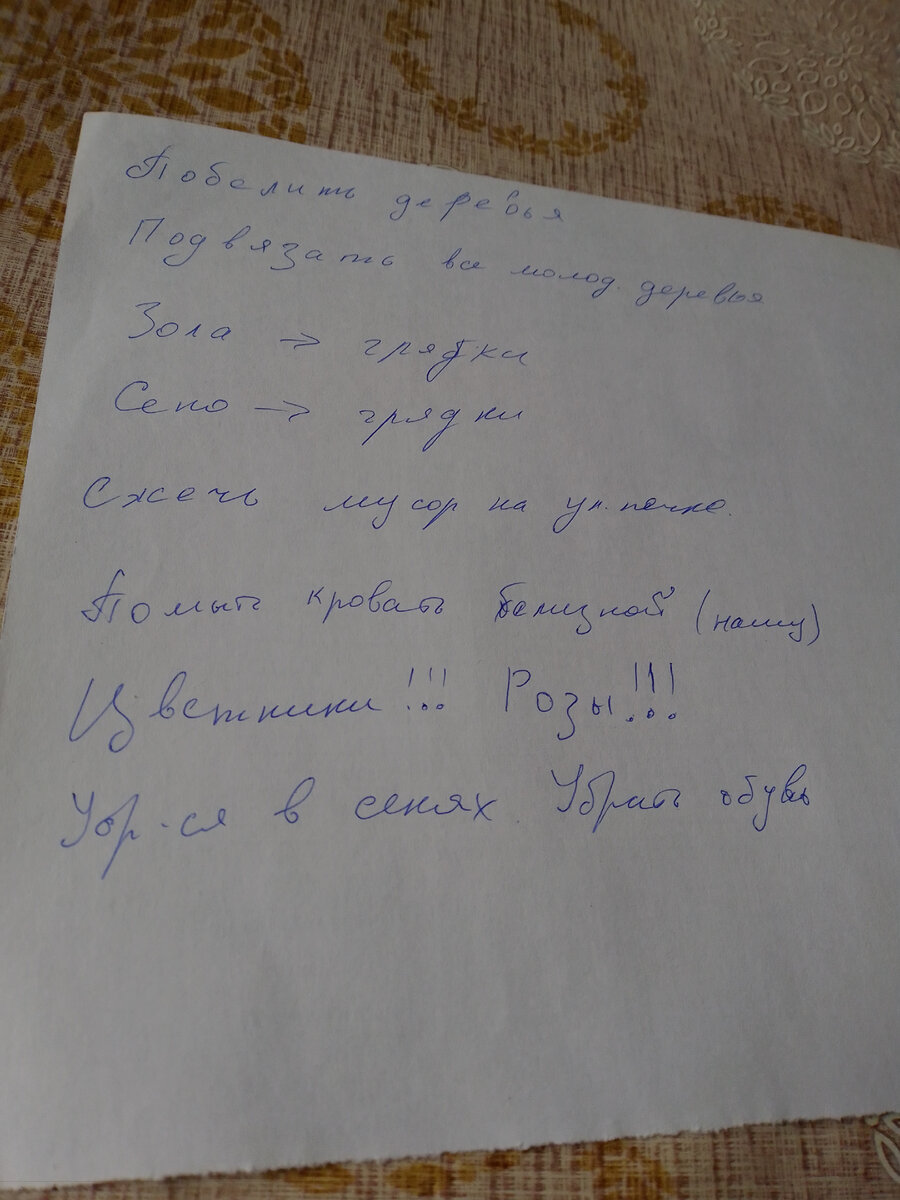 Побелить деревья
Подвязать все молод. деревья
Зола → грядки
Сено → грядки
Сжечь мусор на ул. печке.
Помыть кровать белизной (нашу)
Цветники!!! Розы!!!
Убр-ся в сенях Убрать обувь